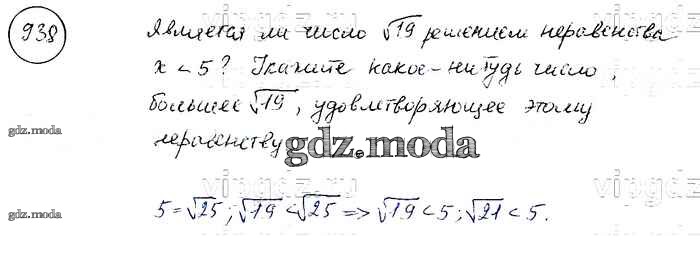 938
Является ли число √19 решением неравенства
x < 5? Укажите какое-нибудь число,
большее √19, удовлетворяющее этому
неравенству
gdz.moda
gdz.moda
gdz.moda
5 = √25; √19 < √25 => √19 < 5; √21 < 5.